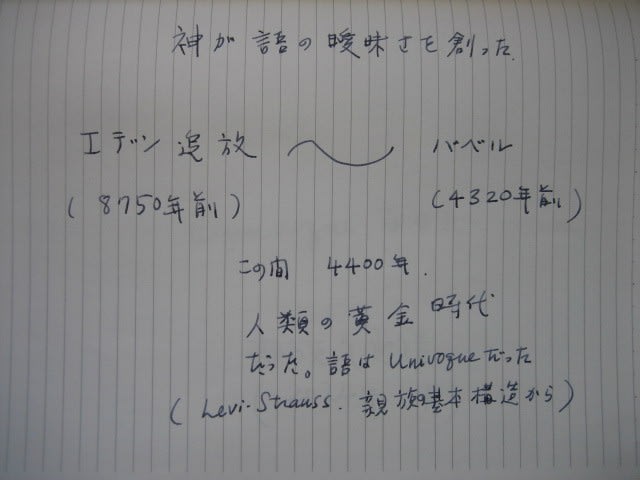 神が語の曖昧さを創った.
エデン追放 〜 バベル
(8750年前) (4320年前)
この間 4400年.
人類の黄金時代
だった。語はUnivoqueだった
(Levi-Strauss. 親族の基本構造から)